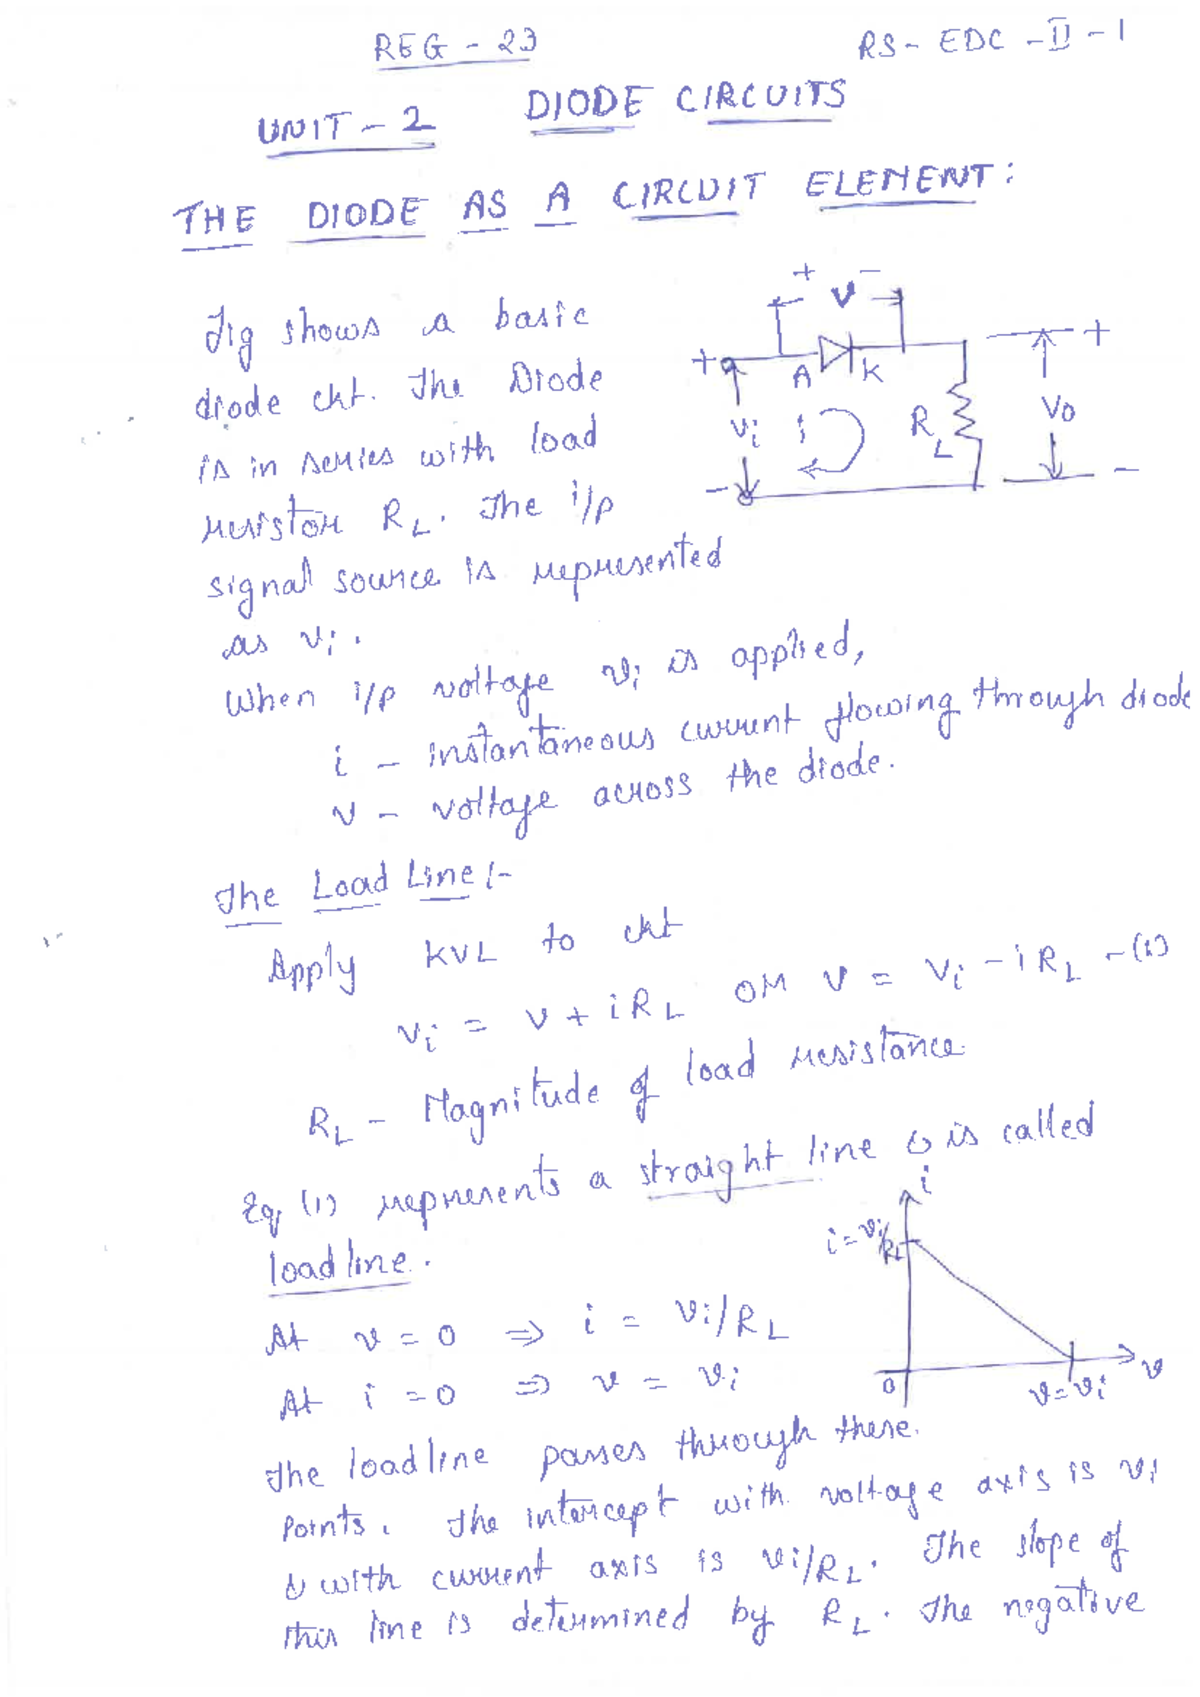 REG - 23
RS - EDC - II - 1
UNIT - 2 DIODE CIRCUITS
THE DIODE AS A CIRCUIT ELEMENT:
Fig shows a basic
diode ckt. The Diode
is in series with load
resistor RL. The i/p
signal source is represented
as vi.
+ v -
+ A K
vi i RL
-
+
Vo
-
When i/p voltage vi is applied,
i - instantaneous current flowing through diode
v - voltage across the diode.
The Load Line :-
Apply KVL to ckt
vi = v + iRL or v = vi - iRL - (1)
RL - Magnitude of load resistance.
Eq (1) represents a straight line & is called
load line.
i
i = vi/RL
0 v = vi v
At v = 0 ⇒ i = vi/RL
At i = 0 ⇒ v = vi
The load line passes through these
points. The intercept with voltage axis is vi
& with current axis is vi/RL. The slope of
this line is determined by RL. The negative